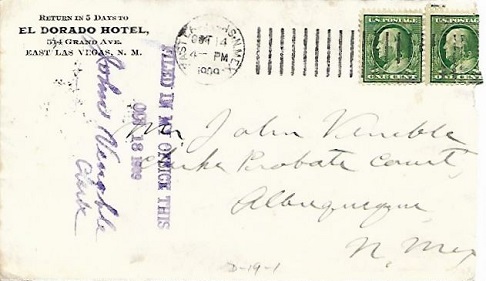 RETURN IN 5 DAYS TO
EL DORADO HOTEL,
514 GRAND AVE.
EAST LAS VEGAS, N. M.
OCT 14
4 - PM
1909
U.S. POSTAGE
ONE CENT
U.S. POSTAGE
ONE CENT
FILED IN MY OFFICE THIS
OCT 18 1909
John Venable
Clerk
Mr John Venable
Clerk Probate Court,
Albuquerque
N. Mex
D-19-1